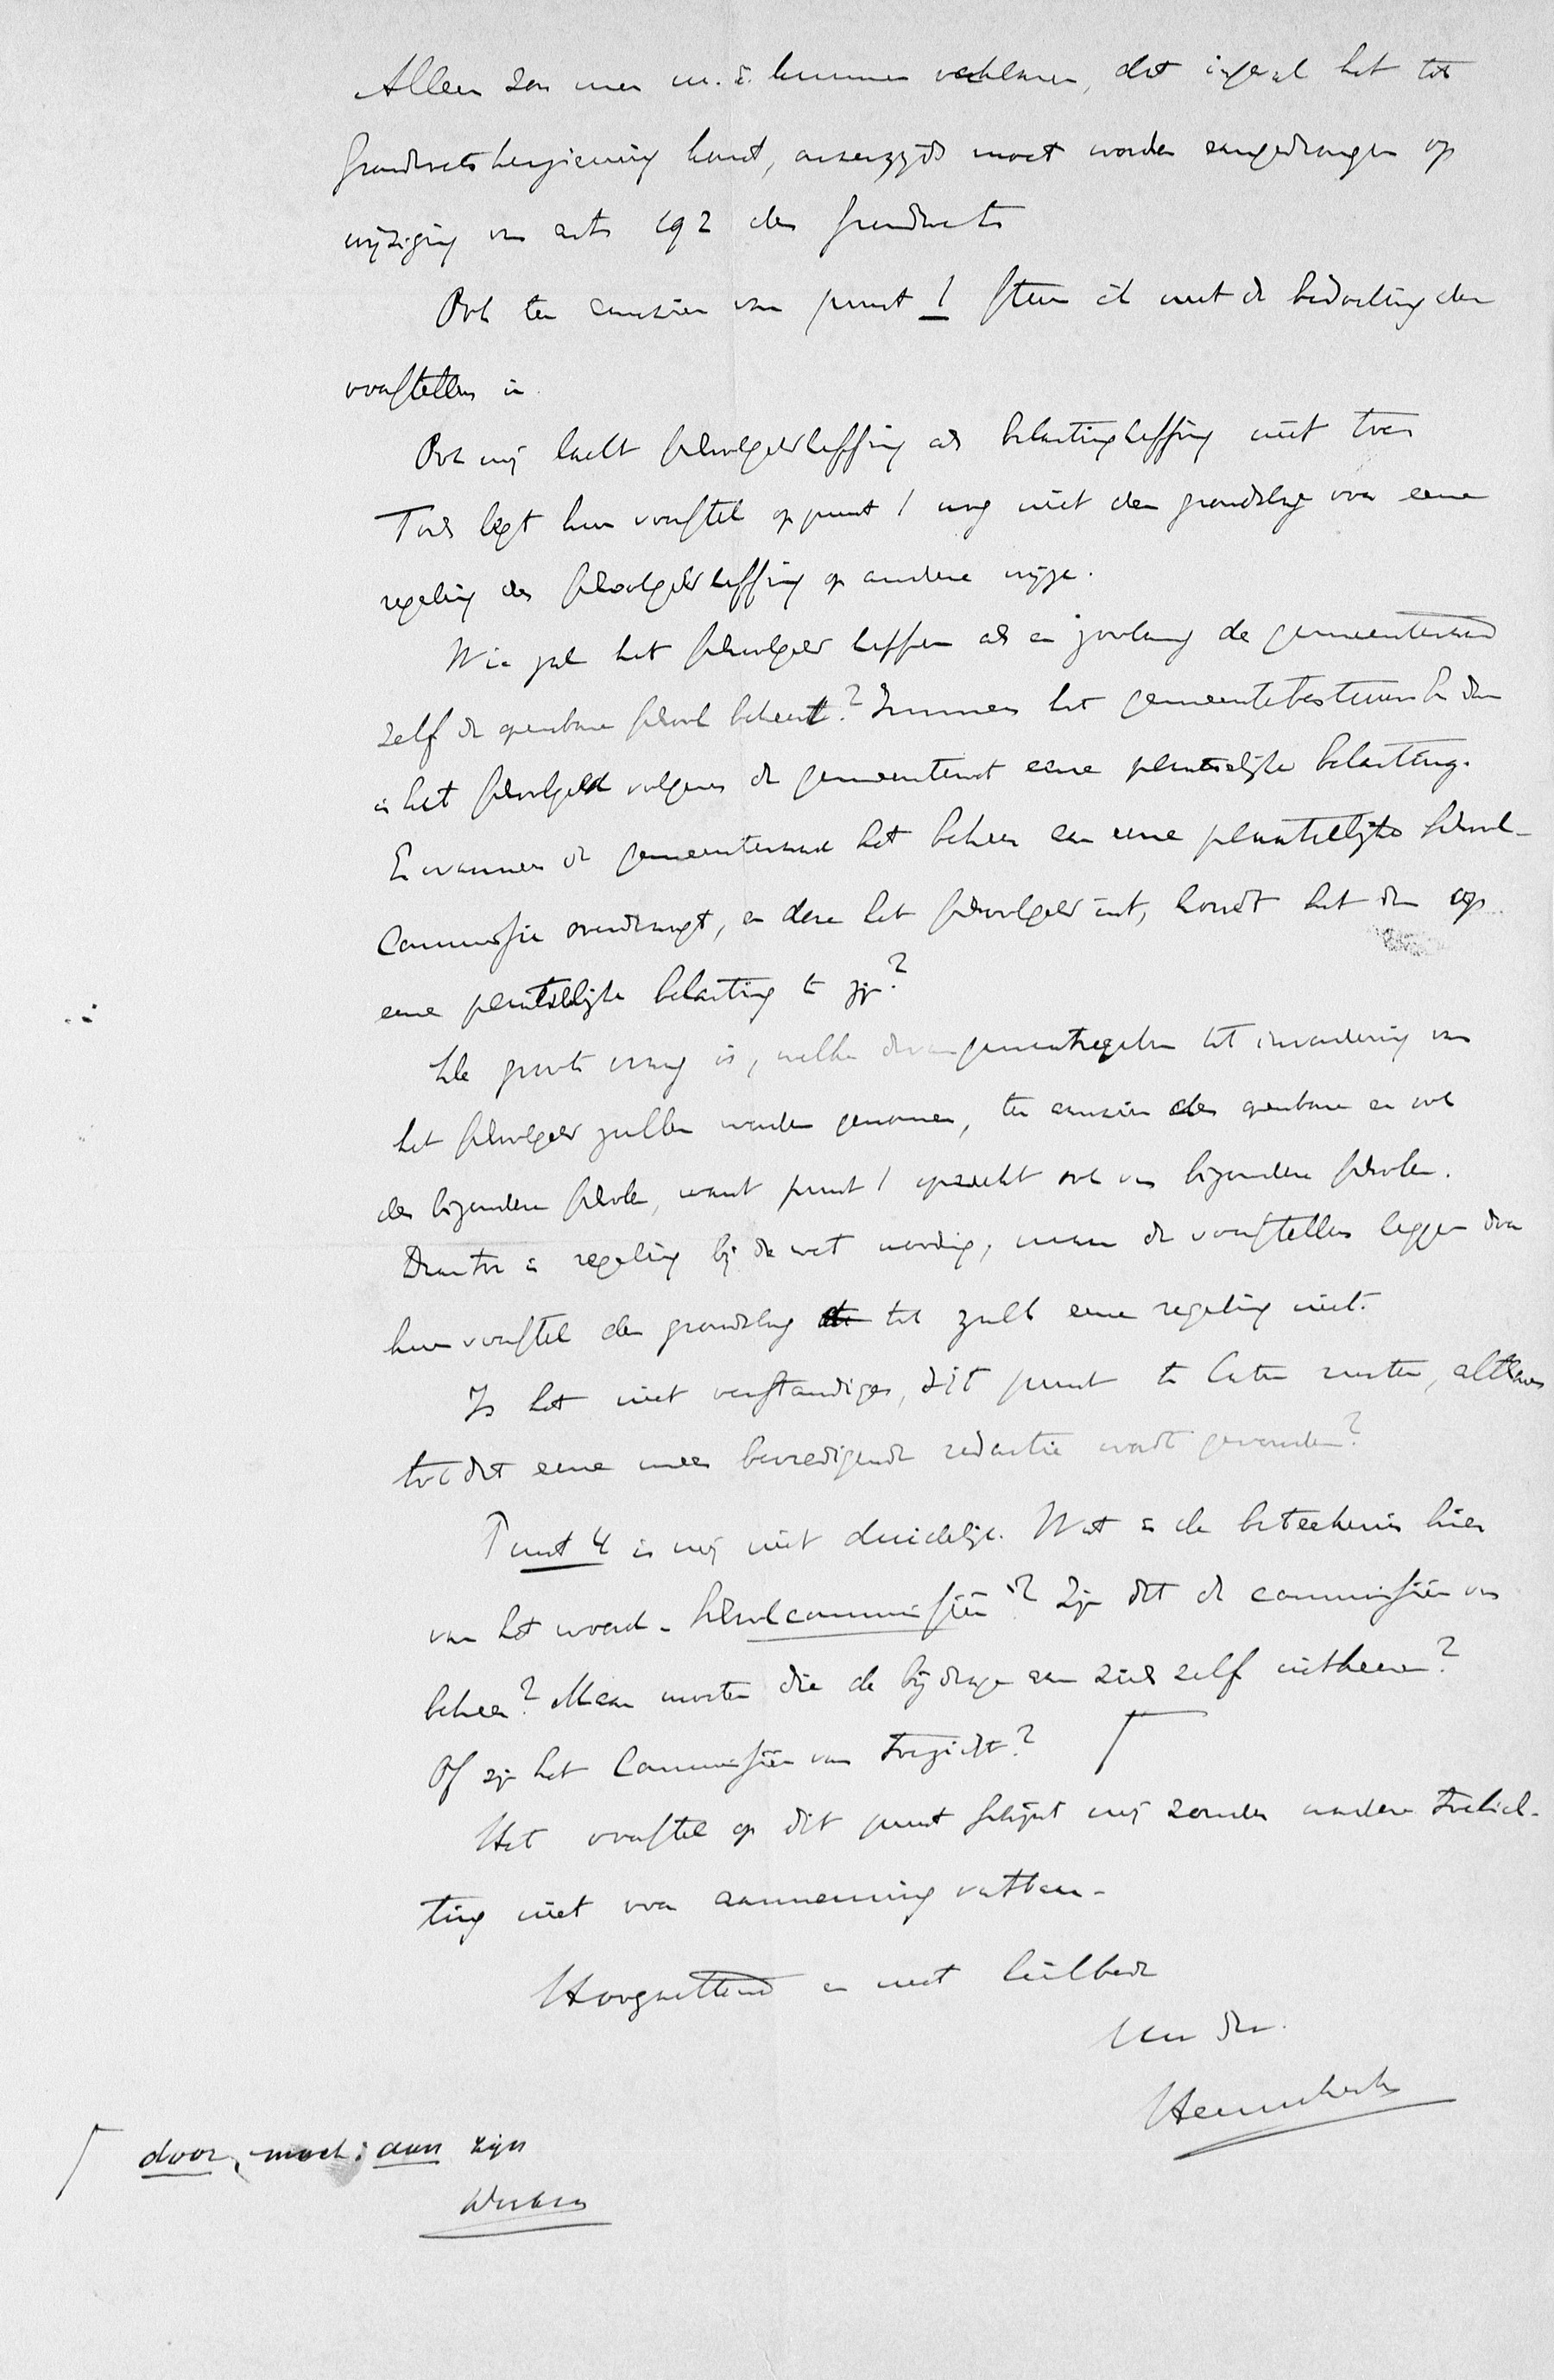 Alleen zou men m.i. kunnen verklaren, dat ingeval het tot
Grondwetsherziening komt, onzerzijds moet worden aangedrongen op
wijziging van art. 192 der Grondwet.
Ook ten aanzien van punt 1 stem ik met de bedoeling der
voorstellers in.
Ook mij lacht schoolgeldheffing als belastingheffing niet toe.
Toch legt hun voorstel op punt 1 nog niet den grondslag voor eene
regeling der schoolgeldheffing op andere wijze.
Wie zal het schoolgeld heffen als en zoolang de gemeenteraad
zelf de openbare school beheert? Immers het gemeentebestuur. En dan
is het schoolgeld volgens de gemeentewet eene plaatselijke belasting.
En wanneer de gemeenteraad het beheer aan eene plaatselijke school-
Commissie overdraagt, en deze het schoolgeld int, houdt het dan op
eene plaatselijke belasting te zijn?
De groote vraag is, welke dwangmaatregelen tot invordering van
het schoolgeld zullen worden genomen, ten aanzien der openbare en ook
der bijzondere scholen, want punt 1 spreekt ook van bijzondere scholen.
Daartoe is regeling bij de wet noodig, maar de voorstellers leggen door
hun voorstel den grondslag tot zulk eene regeling niet.
Is het niet verstandiger, dit punt te laten rusten, althans
tot dat eene meer bevredigende redactie wordt gevonden?
Punt 4 is mij niet duidelijk. Wat is de beteekenis hier
van het woord "schoolcommissiën"? Zijn dit de commissiën van
beheer? Maar moeten die de bijdrage aan zich zelf uitkeeren?
Of zijn het Commissiën van toezicht?
Het voorstel op dit punt schijnt mij zonder nadere toelich-
ting niet voor aanneming vatbaar.
Hoogachtend en met heilbede
Uw dr.
Heemskerk
door, moet: aan zijn